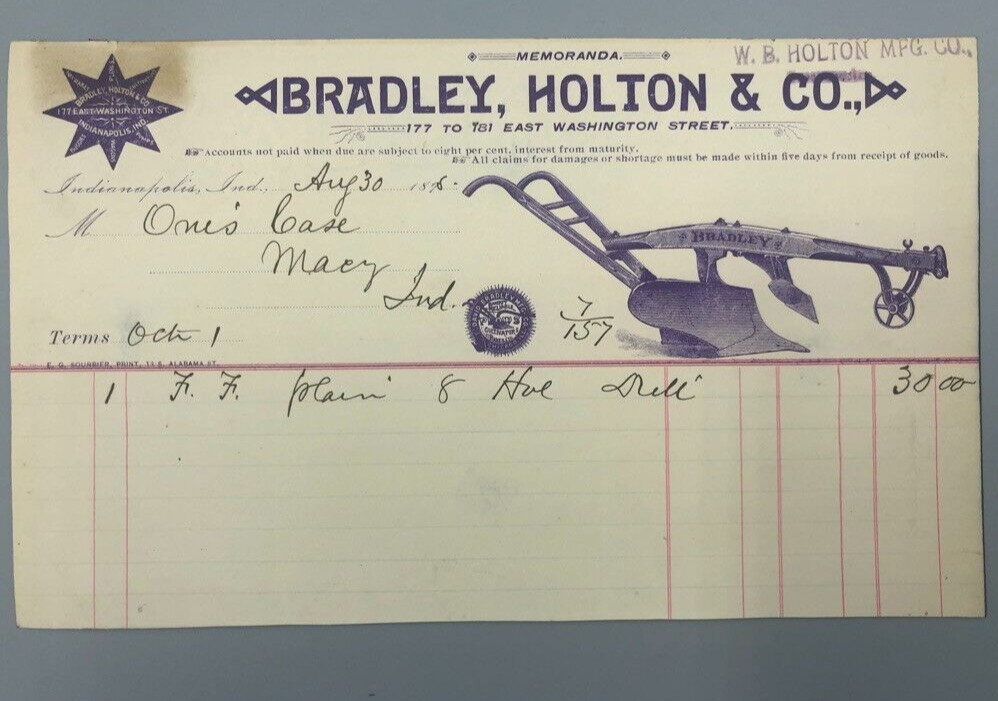 MEMORANDA.
W. B. HOLTON MFG. CO.,
BRADLEY, HOLTON & CO.,
177 TO 181 EAST WASHINGTON STREET.
Accounts not paid when due are subject to eight per cent, interest from maturity.
All claims for damages or shortage must be made within five days from receipt of goods.
BRADLEY, HOLTON & CO.
177 EAST WASHINGTON ST.
INDIANAPOLIS, IND.
Indianapolis, Ind., Aug 30 189
M Case
Macy
Ind.
BRADLEY
7/157
Terms Oct 1
E. G. SOURBIER, PRINT, 13 S. ALABAMA ST.
1 F. F. plain 8 Hoe Drill 30 00